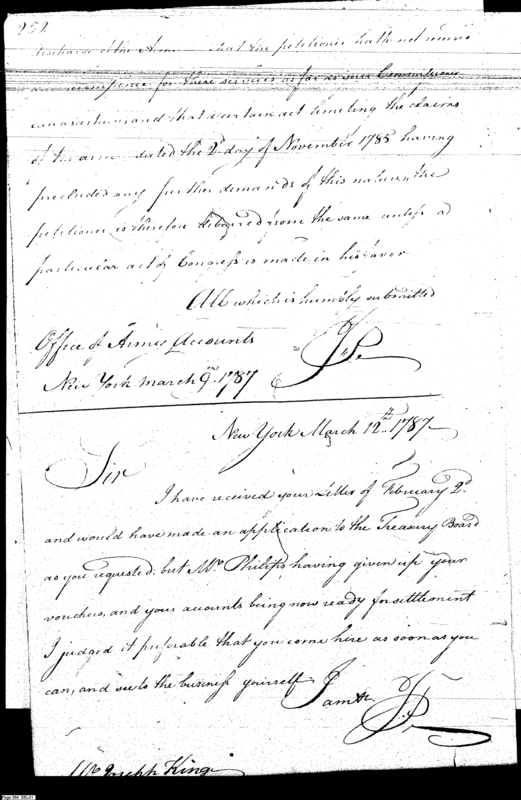 252
discharge of the Army That the petitioner hath not receiv'd
any recompence for these services as far as our Commissioner
can ascertain, and that a certain act limiting the claims
of the army dated the 2d day of November 1785 having
precluded any further demands of this nature, the
petitioner is therefore debarred from the same unless a
particular act of Congress is made in his favor
All which is humbly submitted
Office of Army Accounts
New York March 9th 1787
J. P.
New York March 12th 1787
Sir
I have received your Letter of February 2d
and would have made an application to the Treasury Board
as you requested: but Mr. Philips having given up your
vouchers, and your accounts being now ready for settlement
I judged it preferable that you come here as soon as you
can, and see to the business yourself I am &c
J. P.
Mr Joseph King
Page 254 DBL21